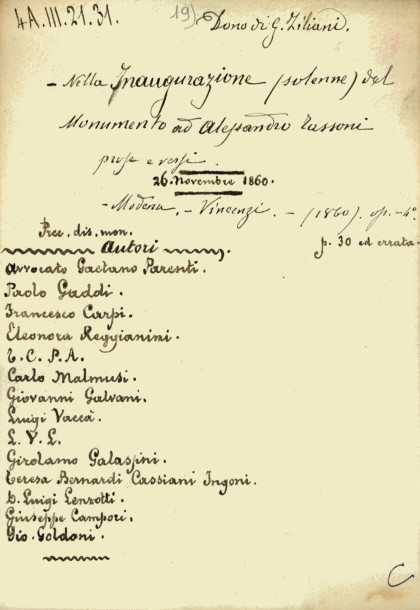 4A.III.21.31.
19)
Dono di G. Ziliani.
- Nella Inaugurazione (solenne) del
Monumento ad Alessandro Tassoni
prose e versi.
26. Novembre 1860.
- Modena. - Vincenzi. - (1860). op. - 4º.
Prec. dis. mon.
p. 30 ed errata.
Autori
Avvocato Gaetano Parenti.
Paolo Gaddi.
Francesco Carpi.
Eleonora Reggianini.
T. C. P. A.
Carlo Malmusi.
Giovanni Galvani.
Luigi Vaccà.
L. V. L.
Girolamo Galassini.
Teresa Bernardi Cassiani Ingoni.
D. Luigi Lenzotti.
Giuseppe Campori.
Gio. Goldoni.
C